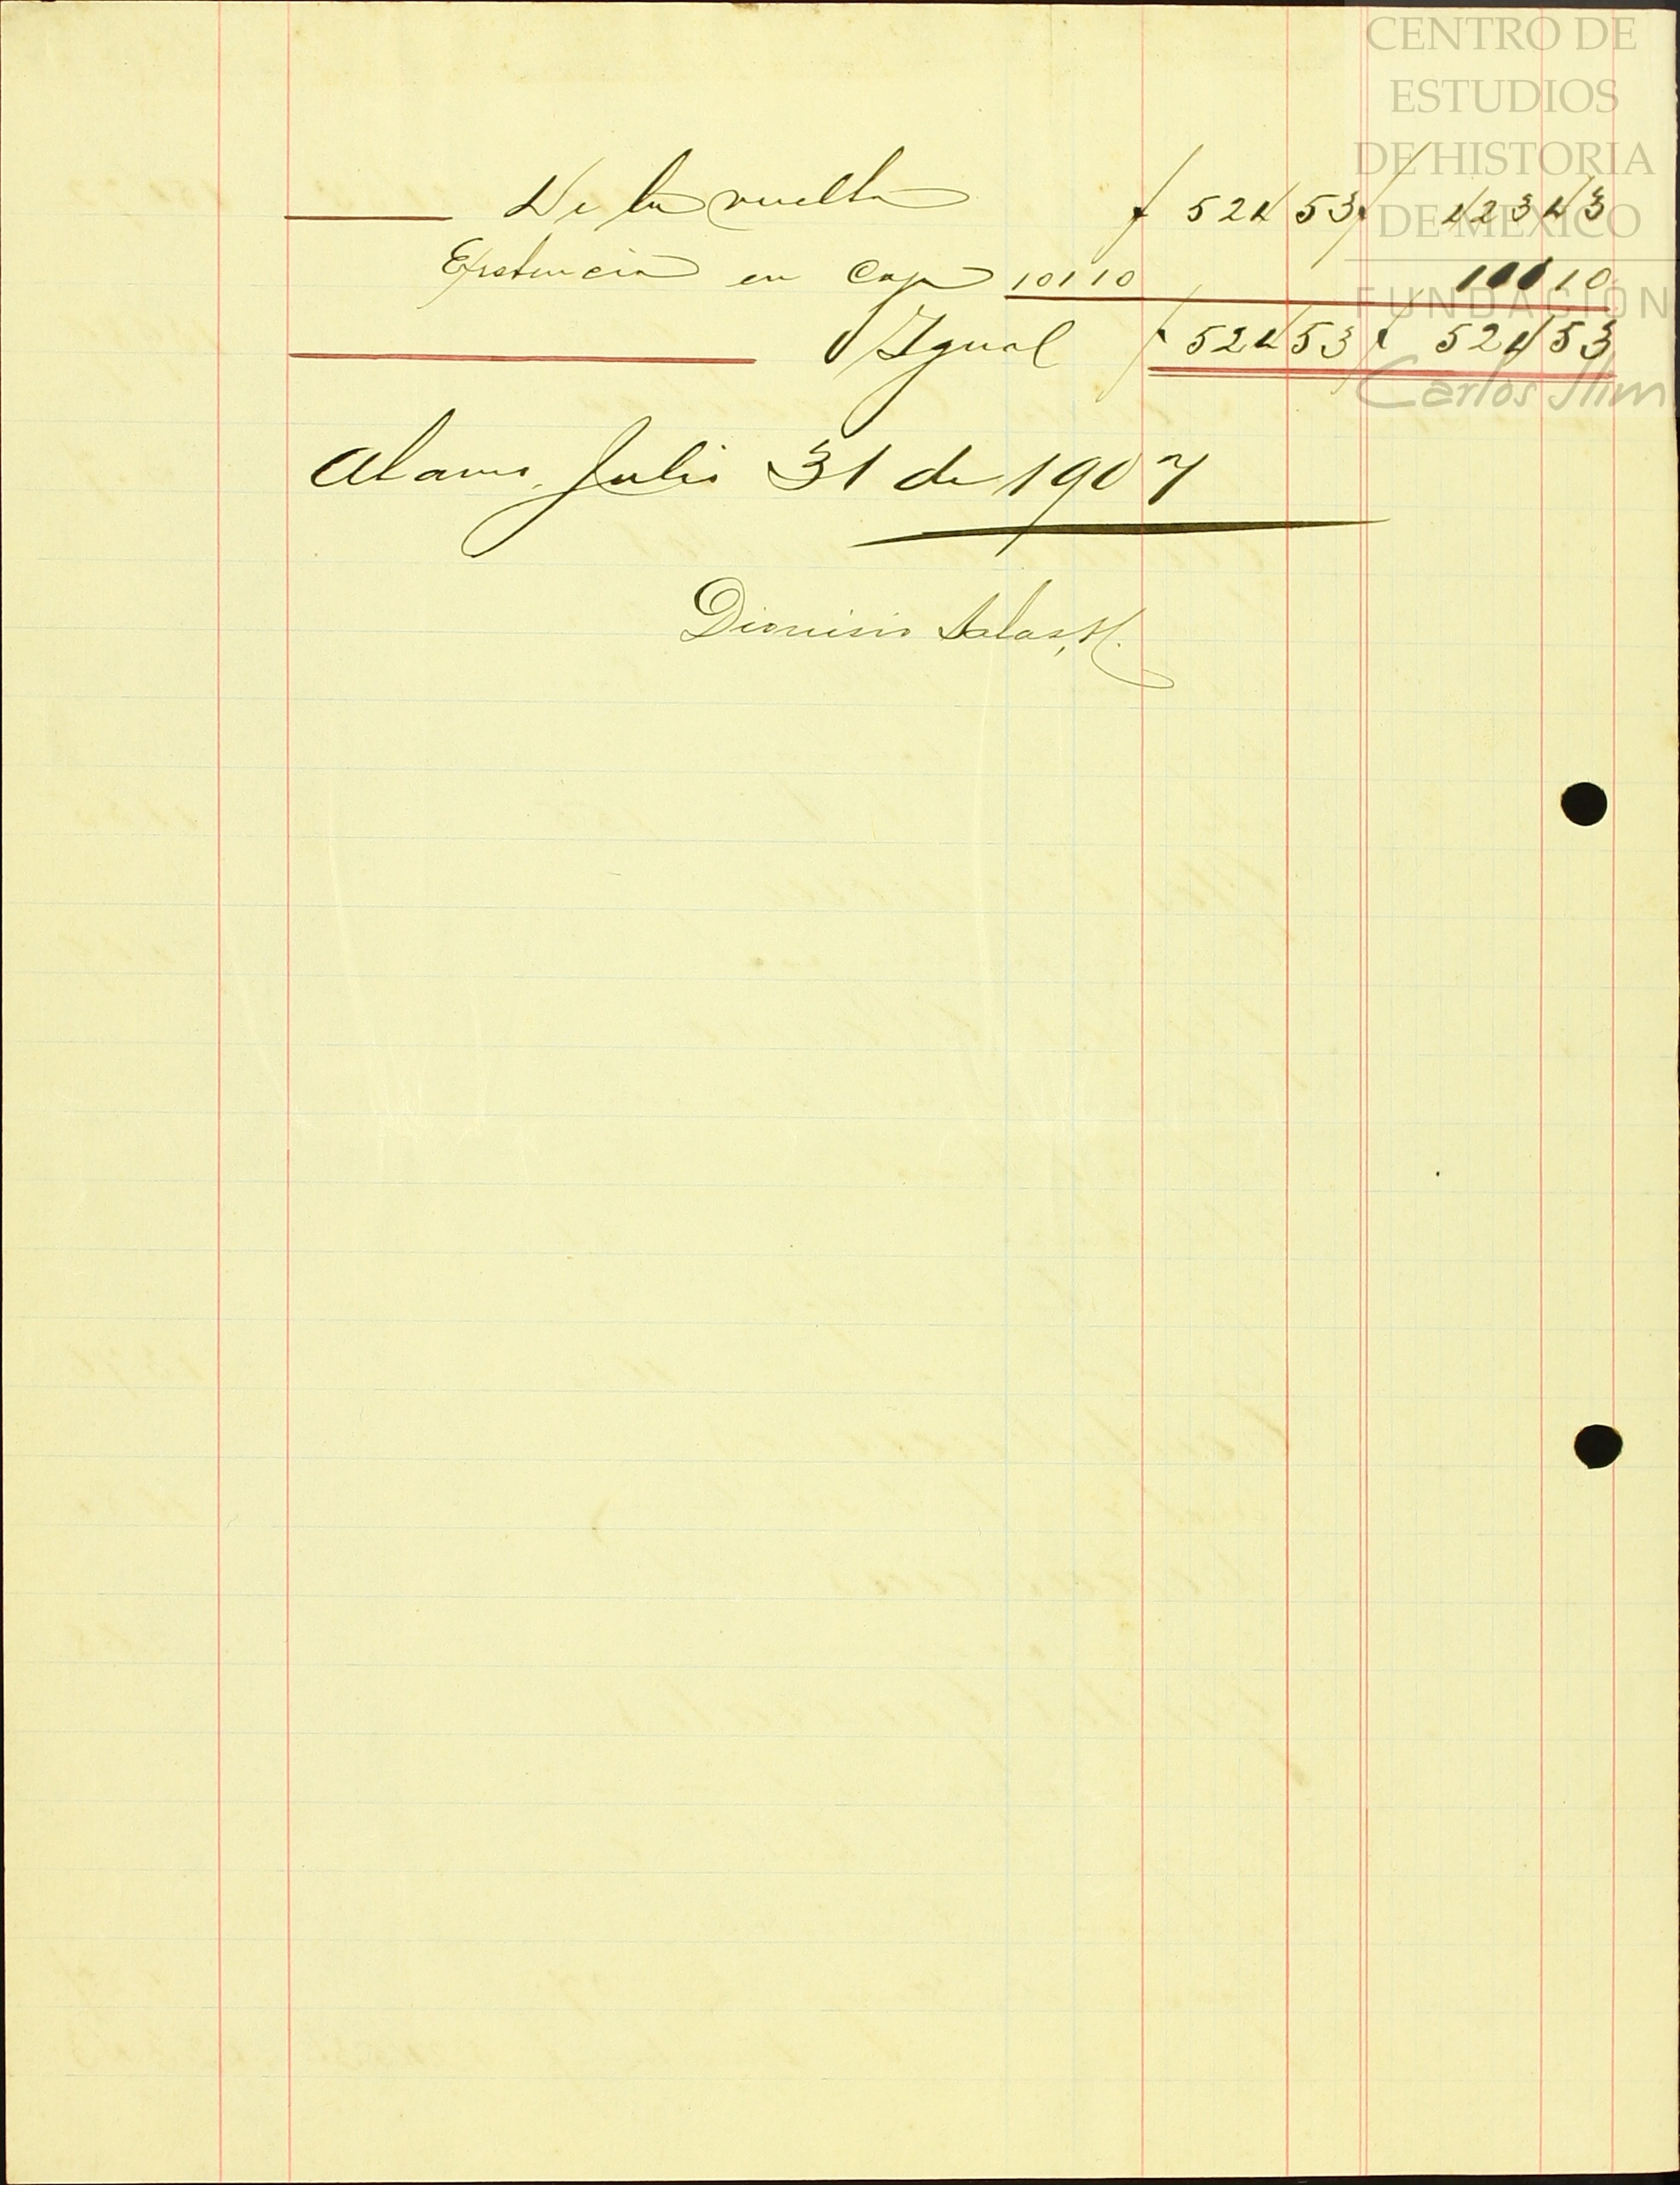 CENTRO DE
ESTUDIOS
DE HISTORIA
DE MEXICO
FUNDACIÓN
Carlos Slim
De la vuelta $ 524 53 $ 423 43
Existencia en Caja 101 10 101 10
Igual $ 524 53 $ 524 53
Alamo, Julio 31 de 1907
Dionisio Salas, H.